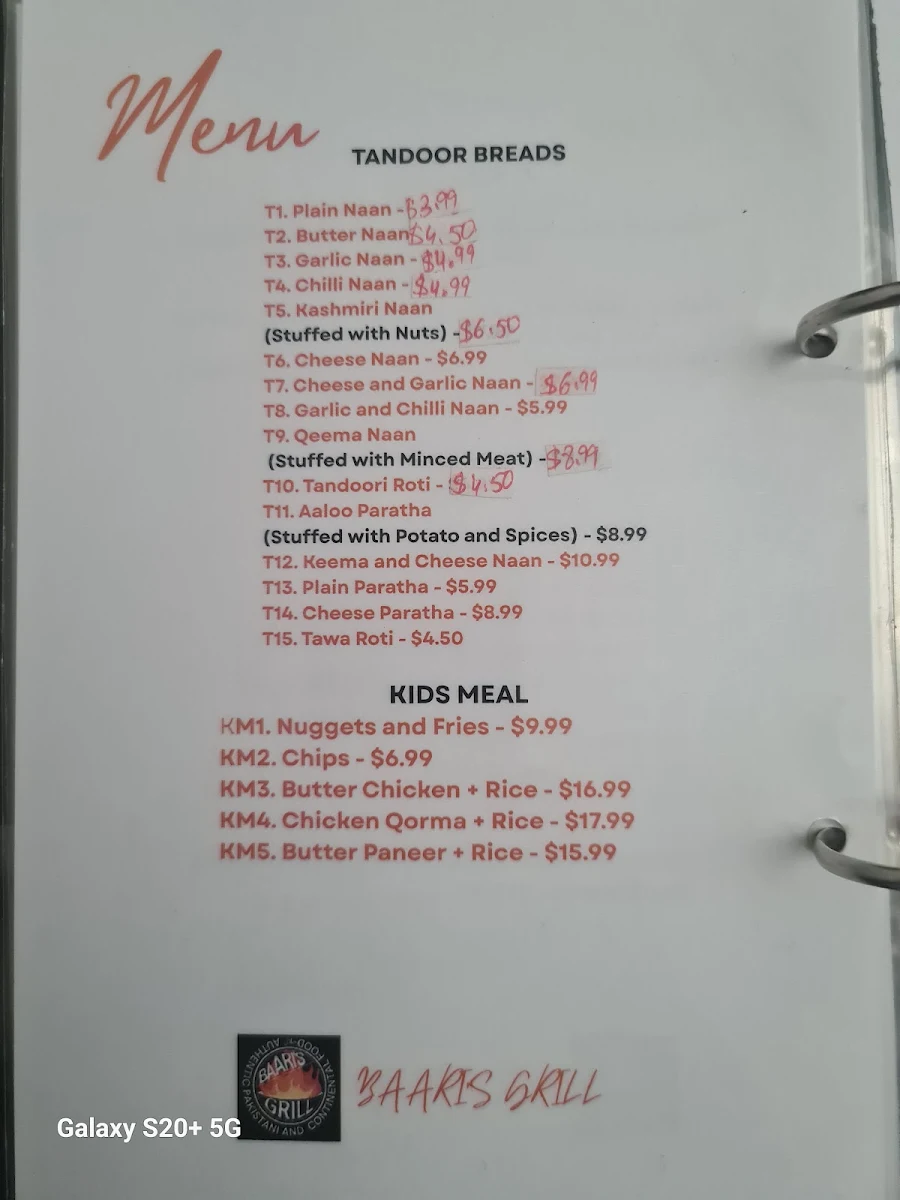 Menu
TANDOOR BREADS
T1. Plain Naan - $3.99
T2. Butter Naan $4.50
T3. Garlic Naan - $4.99
T4. Chilli Naan - $4.99
T5. Kashmiri Naan
(Stuffed with Nuts) - $6.50
T6. Cheese Naan - $6.99
T7. Cheese and Garlic Naan - $6.99
T8. Garlic and Chilli Naan - $5.99
T9. Qeema Naan
(Stuffed with Minced Meat) - $8.99
T10. Tandoori Roti - $4.50
T11. Aaloo Paratha
(Stuffed with Potato and Spices) - $8.99
T12. Keema and Cheese Naan - $10.99
T13. Plain Paratha - $5.99
T14. Cheese Paratha - $8.99
T15. Tawa Roti - $4.50
KIDS MEAL
KM1. Nuggets and Fries - $9.99
KM2. Chips - $6.99
KM3. Butter Chicken + Rice - $16.99
KM4. Chicken Qorma + Rice - $17.99
KM5. Butter Paneer + Rice - $15.99
BAARIS
GRILL
AUTHENTIC PAKISTANI AND CONTINENTAL FOOD
BAARIS GRILL
Galaxy S20+ 5G